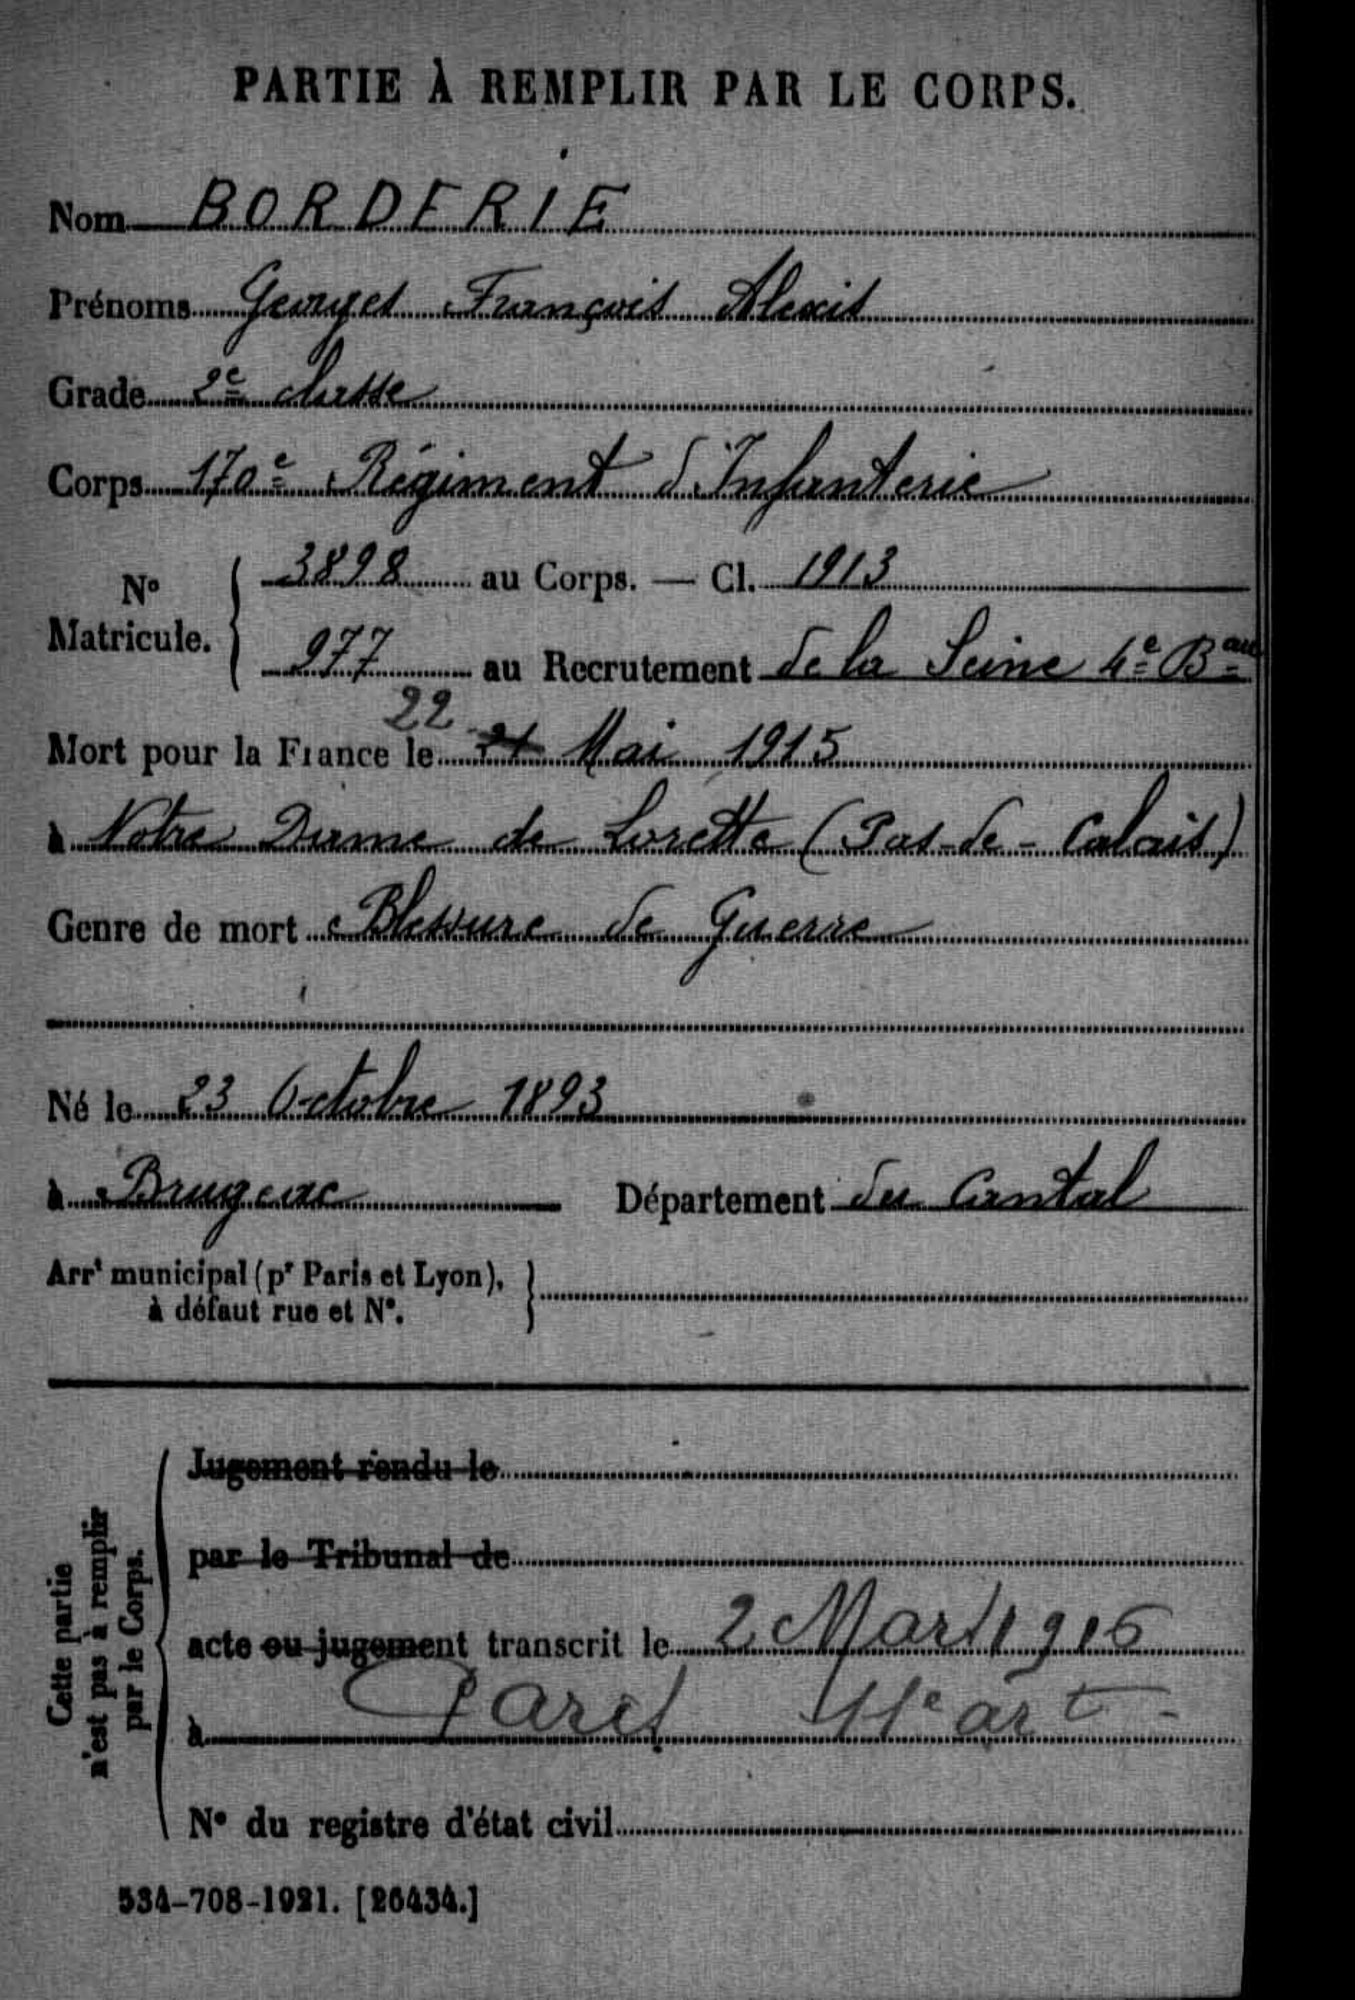 PARTIE À REMPLIR PAR LE CORPS.
Nom BORDERIE
Prénoms Georges François Alexis
Grade 2e classe
Corps 170e Régiment d'Infanterie
No Matricule. 3898 au Corps. — Cl. 1913
977 au Recrutement de la Seine 4e Bau
22
Mort pour la France le 21 Mai 1915
à Notre Dame de Lorette (Pas-de-Calais)
Genre de mort Blessure de Guerre
Né le 23 Octobre 1893
à Brugeac Département du Cantal
Arrt municipal (pr Paris et Lyon),
à défaut rue et No.
Cette partie
n'est pas à remplir
par le Corps.
Jugement rendu le
par le Tribunal de
acte ou jugement transcrit le 2 Mars 1916
à Paris 11e art
No du registre d'état civil
534-708-1921. [26434.]